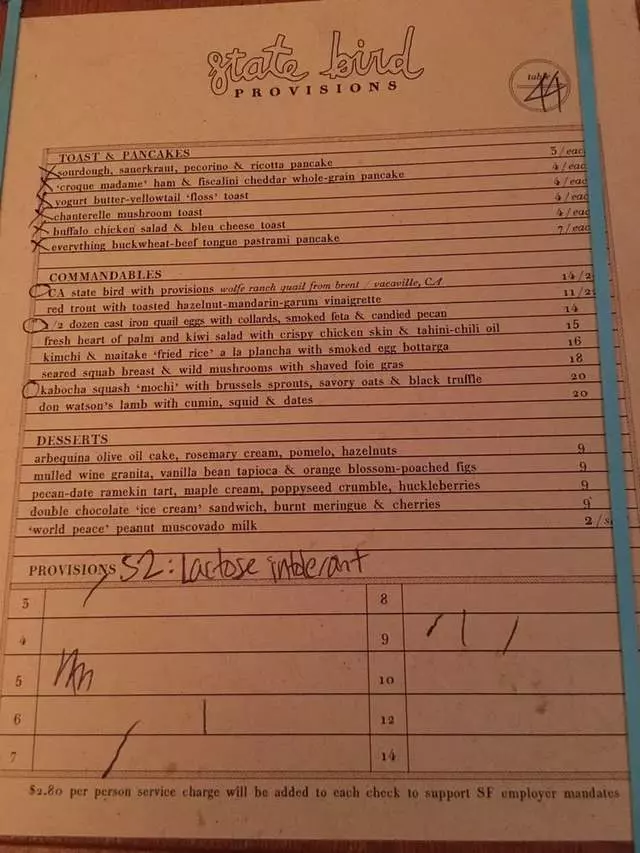 state bird
PROVISIONS
table
44
TOAST & PANCAKES
sourdough, sauerkraut, pecorino & ricotta pancake 3/each
'croque madame' ham & fiscalini cheddar whole-grain pancake 4/each
yogurt butter-yellowtail 'floss' toast 4/each
chanterelle mushroom toast 4/each
buffalo chicken salad & bleu cheese toast 4/each
everything buckwheat-beef tongue pastrami pancake 7/each
COMMANDABLES
CA state bird with provisions wolfe ranch quail from brent / vacaville, CA 14/2
red trout with toasted hazelnut-mandarin-garum vinaigrette 11/2
1/2 dozen cast iron quail eggs with collards, smoked feta & candied pecan 14
fresh heart of palm and kiwi salad with crispy chicken skin & tahini-chili oil 15
kimchi & maitake 'fried rice' a la plancha with smoked egg bottarga 16
seared squab breast & wild mushrooms with shaved foie gras 18
kabocha squash 'mochi' with brussels sprouts, savory oats & black truffle 20
don watson's lamb with cumin, squid & dates 20
DESSERTS
arbequina olive oil cake, rosemary cream, pomelo, hazelnuts 9
mulled wine granita, vanilla bean tapioca & orange blossom-poached figs 9
pecan-date ramekin tart, maple cream, poppyseed crumble, huckleberries 9
double chocolate 'ice cream' sandwich, burnt meringue & cherries 9
'world peace' peanut muscovado milk 2/s
PROVISIONS S2: Lactose intolerant
3 8
4 9
5 10
6 12
7 14
$2.80 per person service charge will be added to each check to support SF employer mandates